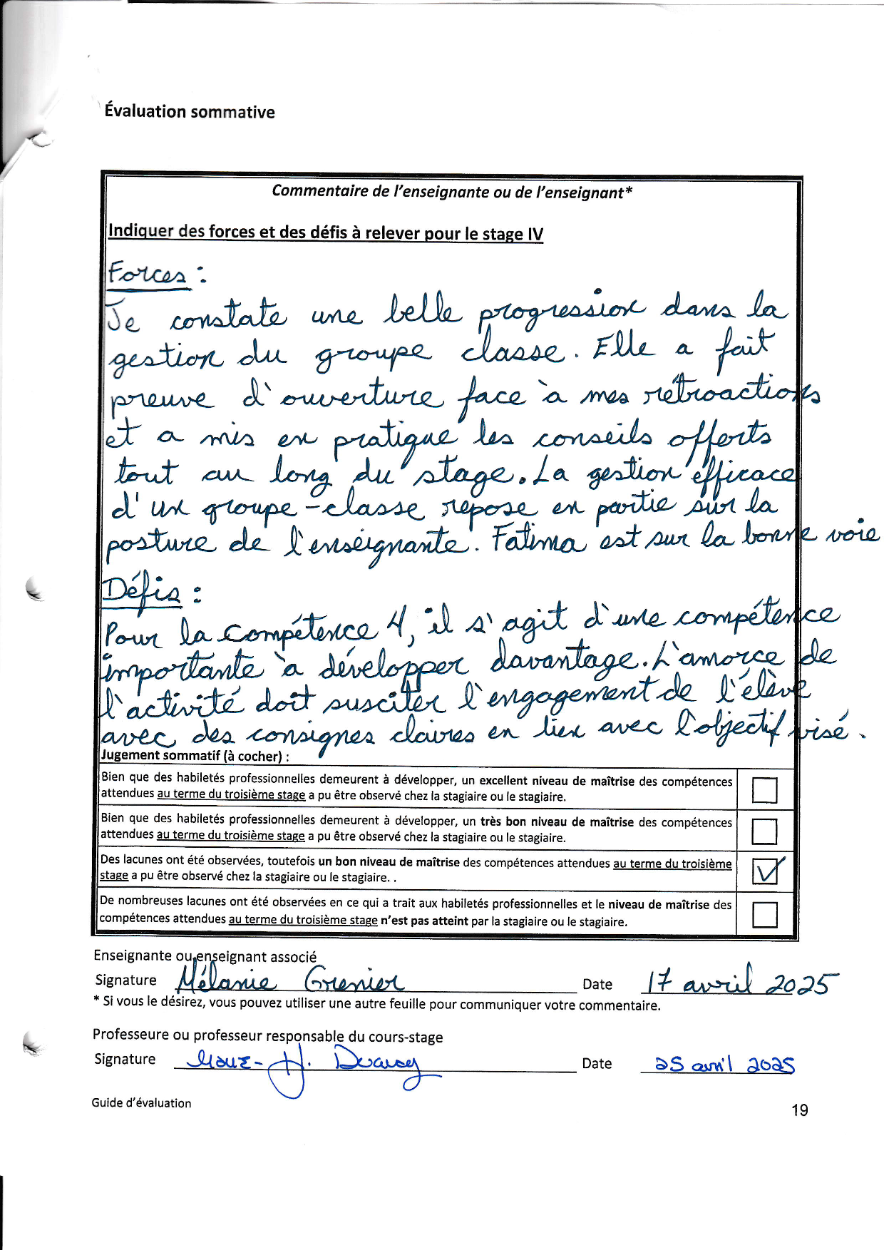 Évaluation sommative
Commentaire de l'enseignante ou de l'enseignant*
Indiquer des forces et des défis à relever pour le stage IV
Forces :
Je constate une belle progression dans la
gestion du groupe classe. Elle a fait
preuve d'ouverture face à mes rétroactions
et a mis en pratique les conseils offerts
tout au long du stage. La gestion efficace
d'un groupe-classe repose en partie sur la
posture de l'enseignante. Fatima est sur la bonne voie
Défis :
Pour la compétence 4, il s'agit d'une compétence
importante à développer davantage. L'amorce de
l'activité doit susciter l'engagement de l'élève
avec des consignes claires en lien avec l'objectif visé.
Jugement sommatif (à cocher) :
Bien que des habiletés professionnelles demeurent à développer, un excellent niveau de maîtrise des compétences
attendues au terme du troisième stage a pu être observé chez la stagiaire ou le stagiaire.
Bien que des habiletés professionnelles demeurent à développer, un très bon niveau de maîtrise des compétences
attendues au terme du troisième stage a pu être observé chez la stagiaire ou le stagiaire.
Des lacunes ont été observées, toutefois un bon niveau de maîtrise des compétences attendues au terme du troisième
stage a pu être observé chez la stagiaire ou le stagiaire. .
De nombreuses lacunes ont été observées en ce qui a trait aux habiletés professionnelles et le niveau de maîtrise des
compétences attendues au terme du troisième stage n'est pas atteint par la stagiaire ou le stagiaire.
Enseignante ou enseignant associé
Signature Mélanie Grenier Date 17 avril 2025
* Si vous le désirez, vous pouvez utiliser une autre feuille pour communiquer votre commentaire.
Professeure ou professeur responsable du cours-stage
Signature H. Date 25 avril 2025
Guide d'évaluation
19